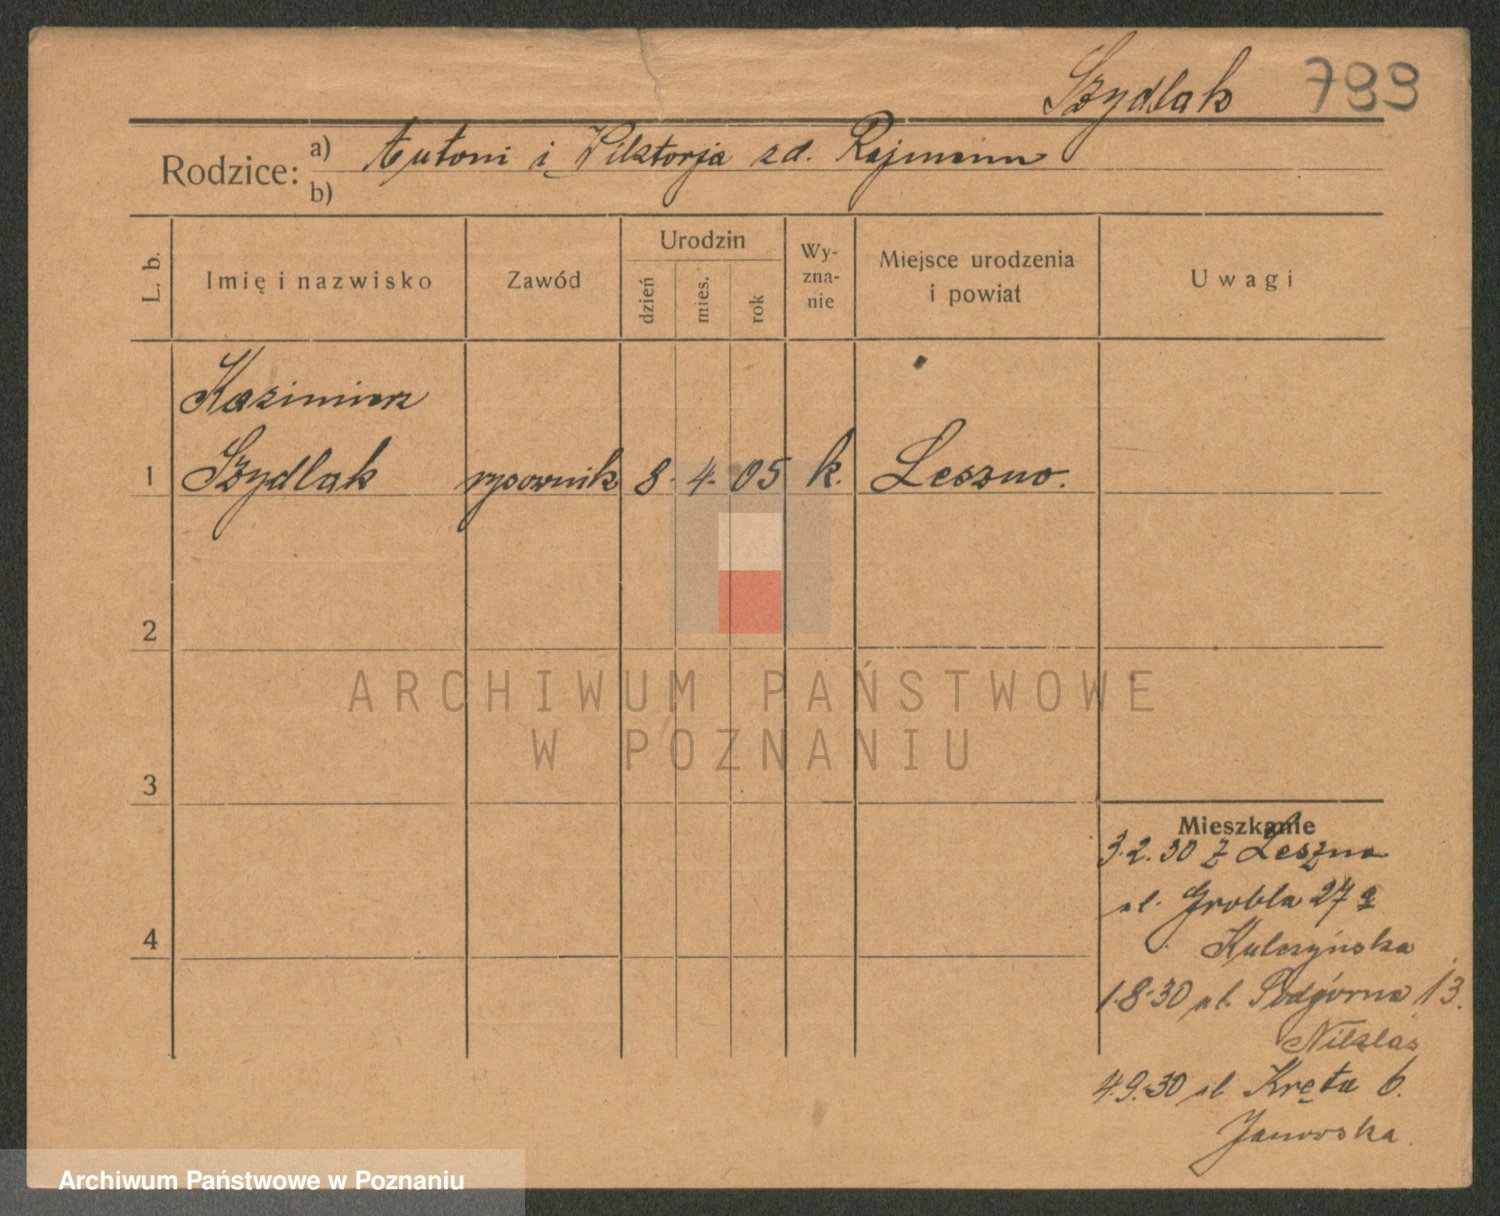 Szydlak 799
Rodzice: a) Antoni i Wiktorja zd. Rajmann
b)
L. b. Imię i nazwisko Zawód Urodzin dzień mies. rok Wy-zna-nie Miejsce urodzenia i powiat Uwagi
Kazimierz
1 Szydlak rysownik 8. 4. 05 k. Leszno.
2
ARCHIWUM PAŃSTWOWE
W POZNANIU
3
Mieszkanie
3.2.30 z Leszna
ul. Grobla 27a
4
Kulczyńska
1.8.30 ul. Podgórna 13.
4.9.30 ul Kręta 6.
Janowska
Archiwum Państwowe w Poznaniu